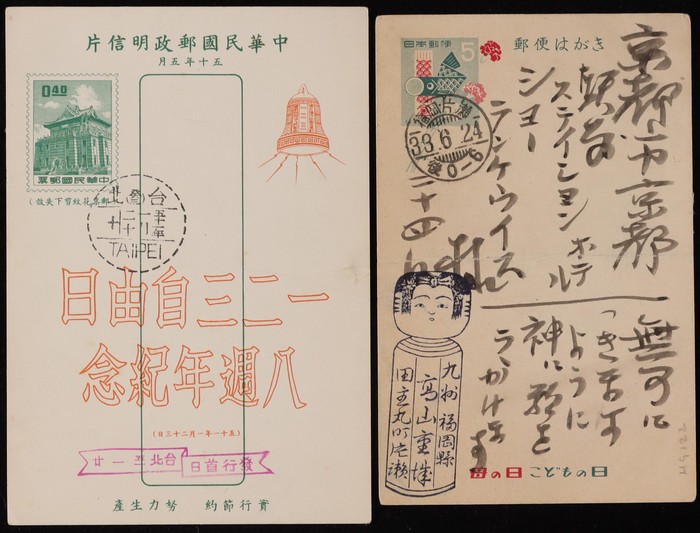 中華民國郵政明信片
五十年五月
0.40
中華民國郵票
(郵票花紋剪下失效)
台(發)北
五十一年
TAIPEI
一二三自由日
八週年紀念
(五十一年一月二十三日)
發行首日
台北
實行節約 努力生產
郵便はがき
日本郵便
5
福岡片瀬
38.6.24
後0-6
京都市京都
駅前
ステイション ホテル
ショー
ランケウイス
二十四日
無事に
つきます
ように
神に願を
うかけます
九州 福岡縣
田主丸町片瀬
高山重城
母の日 こどもの日